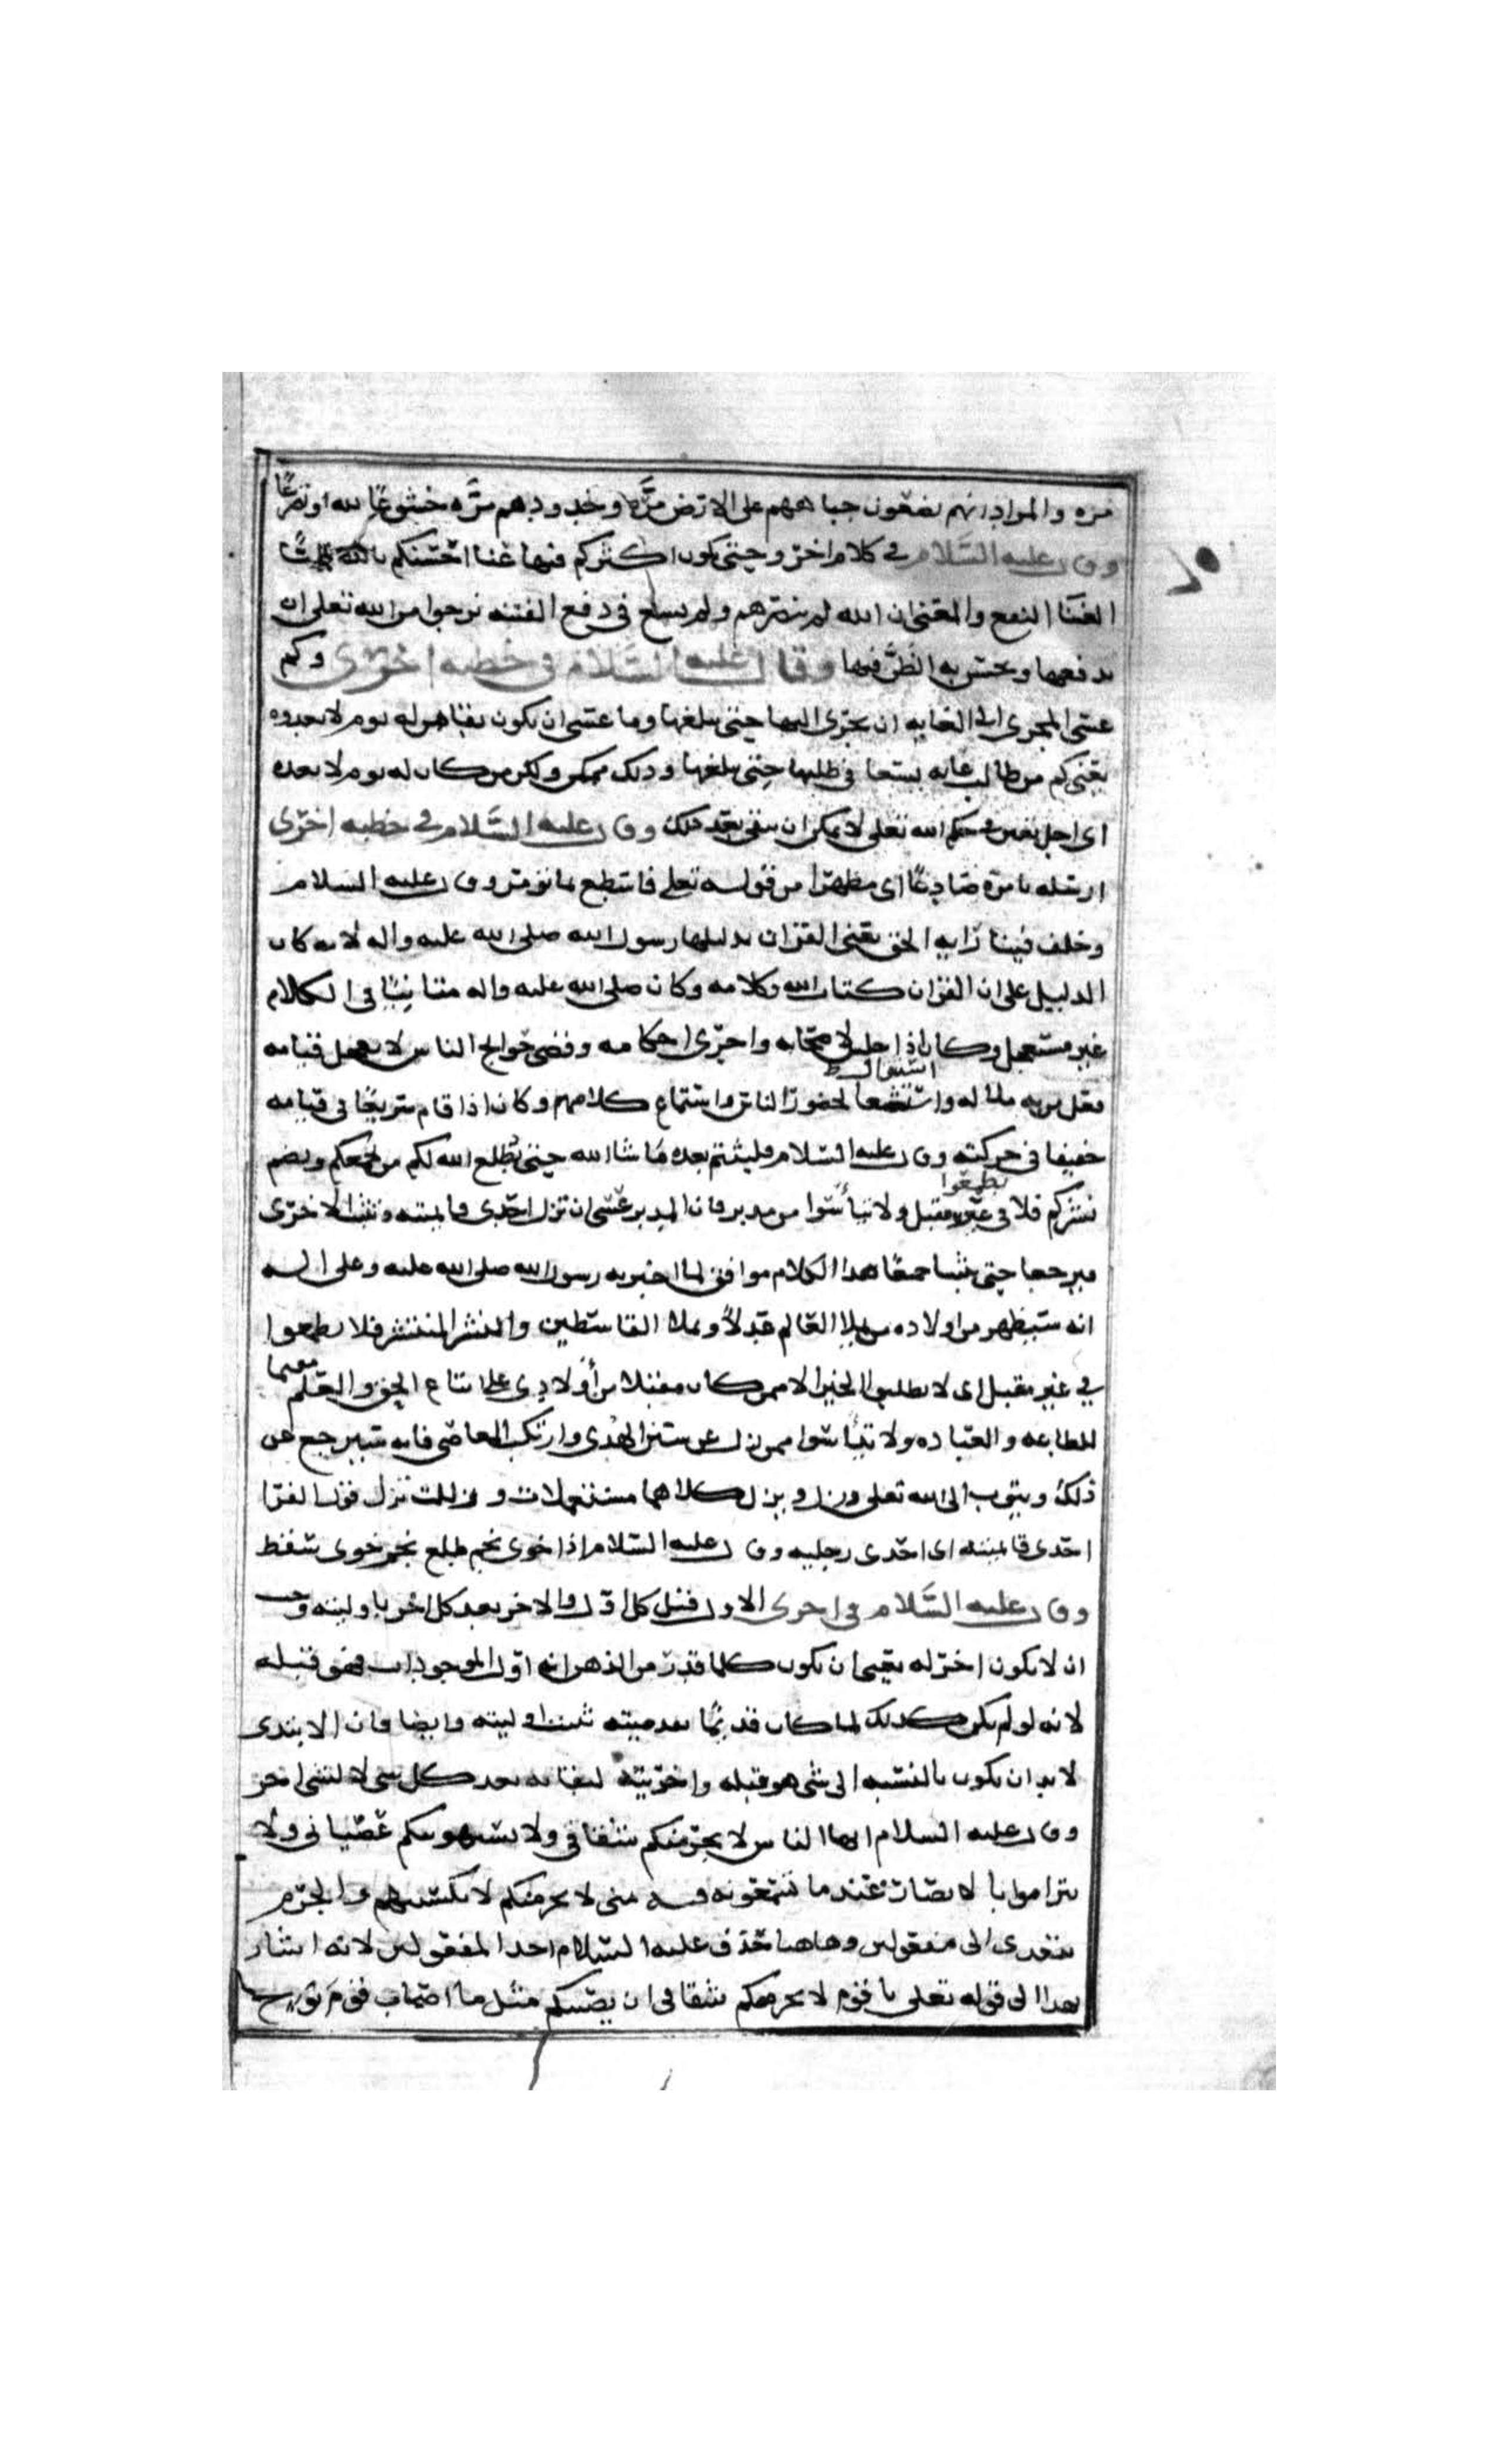 مره والمراد انهم يضعون جباههم على الارض مرّه وخدودهم مرّه خشوعًا لله وتضرعًا
وقال عليه السلام في كلام اخر وحتى يكون اكثركم فيها غنا احسنكم بالله ظنًا
الغنا النفع والمعنى ان الله لم ينصرهم ولم يسلح في دفع الفتنه نرجوا من الله تعلى ان
يدفعها ويحسن به الظنّ فيها وقال عليه السّلام في خطبه اخرى وكم
عسى المجرى الى الغايه ان يجرى اليها حتى يبلغها وما عسى ان يكون بقا من له يوم لا يعدوه
يعني كم من طالب غايه يسعا في طلبها حتى يبلغها وذلك ممكن ولكن من كان له يوم لا يعده
اى اجل معين في حكم الله تعلى لا يمكن ان يبقى بعد ذلك وقال عليه السّلام في خطبه اخرى
ارسله بامره صادعًا اى مظهرا من قوله تعلى فاصدع بما تؤمر وقال عليه السلام
وخلف فينا رايه الحق يعني القران بدليلها رسول الله صلى الله عليه واله لانه كان
الدليل على ان القران كتاب الله وكلامه وكان صلى الله عليه واله متانيًا في الكلام
غير مستعجل وكان اذا جلس لاصحابه واجرى احكامه وقضى حوايج الناس لا يعجل قيامه
لحضور الناس واستماع كلامهم وكان اذا قام سريعًا في قيامه
خفيفا في حركته وقال عليه السّلام فلبثتم بعده ما شا الله حتى يُطلع الله لكم من يجمعكم ويضم
نشركم فلا تطمعوا في غير مقبل ولا تيأسوا من مدبر فان المدبر عسى ان تزل احدى قايمتيه وتثبت الاخرى
فيرجعا حتى يثبتا جميعًا هذا الكلام موافق لما اخبر به رسول الله صلى الله عليه وعلى اله
انه سيظهر من اولاده من يملا العالم عدلًا ويملا القاسطين والنشر المنتشر فلا تطمعوا
في غير مقبل اى لا تطلبوا الخير الا ممن كان مقبلا من أولادي على اتباع الحق والعلم معيما
للطاعه والعباده ولا تيأسوا ممن زل عن سنن الهدى وارتكب المعاصي فانه سيرجع عن
ذلك ويتوب الى الله تعلى وزل ويزل كلاهما مستعملان وزللت تزل قول الفرا
احدى قايمتيه اى احدى رجليه وقال عليه السّلام اذا خوى نجم طلع نجم خوى سقط
وقال عليه السّلام في اخرى الاول قبل كل اوّل والاخر بعد كل اخر باوليته وجب
ان لا يكون اخر له يعني ان يكون كلما قدر من الذهن انه اوّل الموجودات فهو قبله
لانه لو لم يكن كذلك لما كان قديمًا بقدميته ثبت اوليته وايضا فان الابتدى
لا بد ان يكون بالنسبه الى شى هو قبله واخريته لبقائه بعد كل شى لا لشى اخر
وقال عليه السلام ايها الناس لا يجرمنكم شقاقي ولا يستهوينكم عصياني ولا
تتراموا بالابصار عندما تسمعونه مني لا يجرمنكم لا يكسبنكم والجرم
يتعدى الى مفعولين وهاهنا حذف عليه السّلام احد المفعولين لانه اشار
بهذا الى قوله تعلى يا قوم لا يجرمنكم شقاقى ان يصيبكم مثل ما اصاب قوم نوح